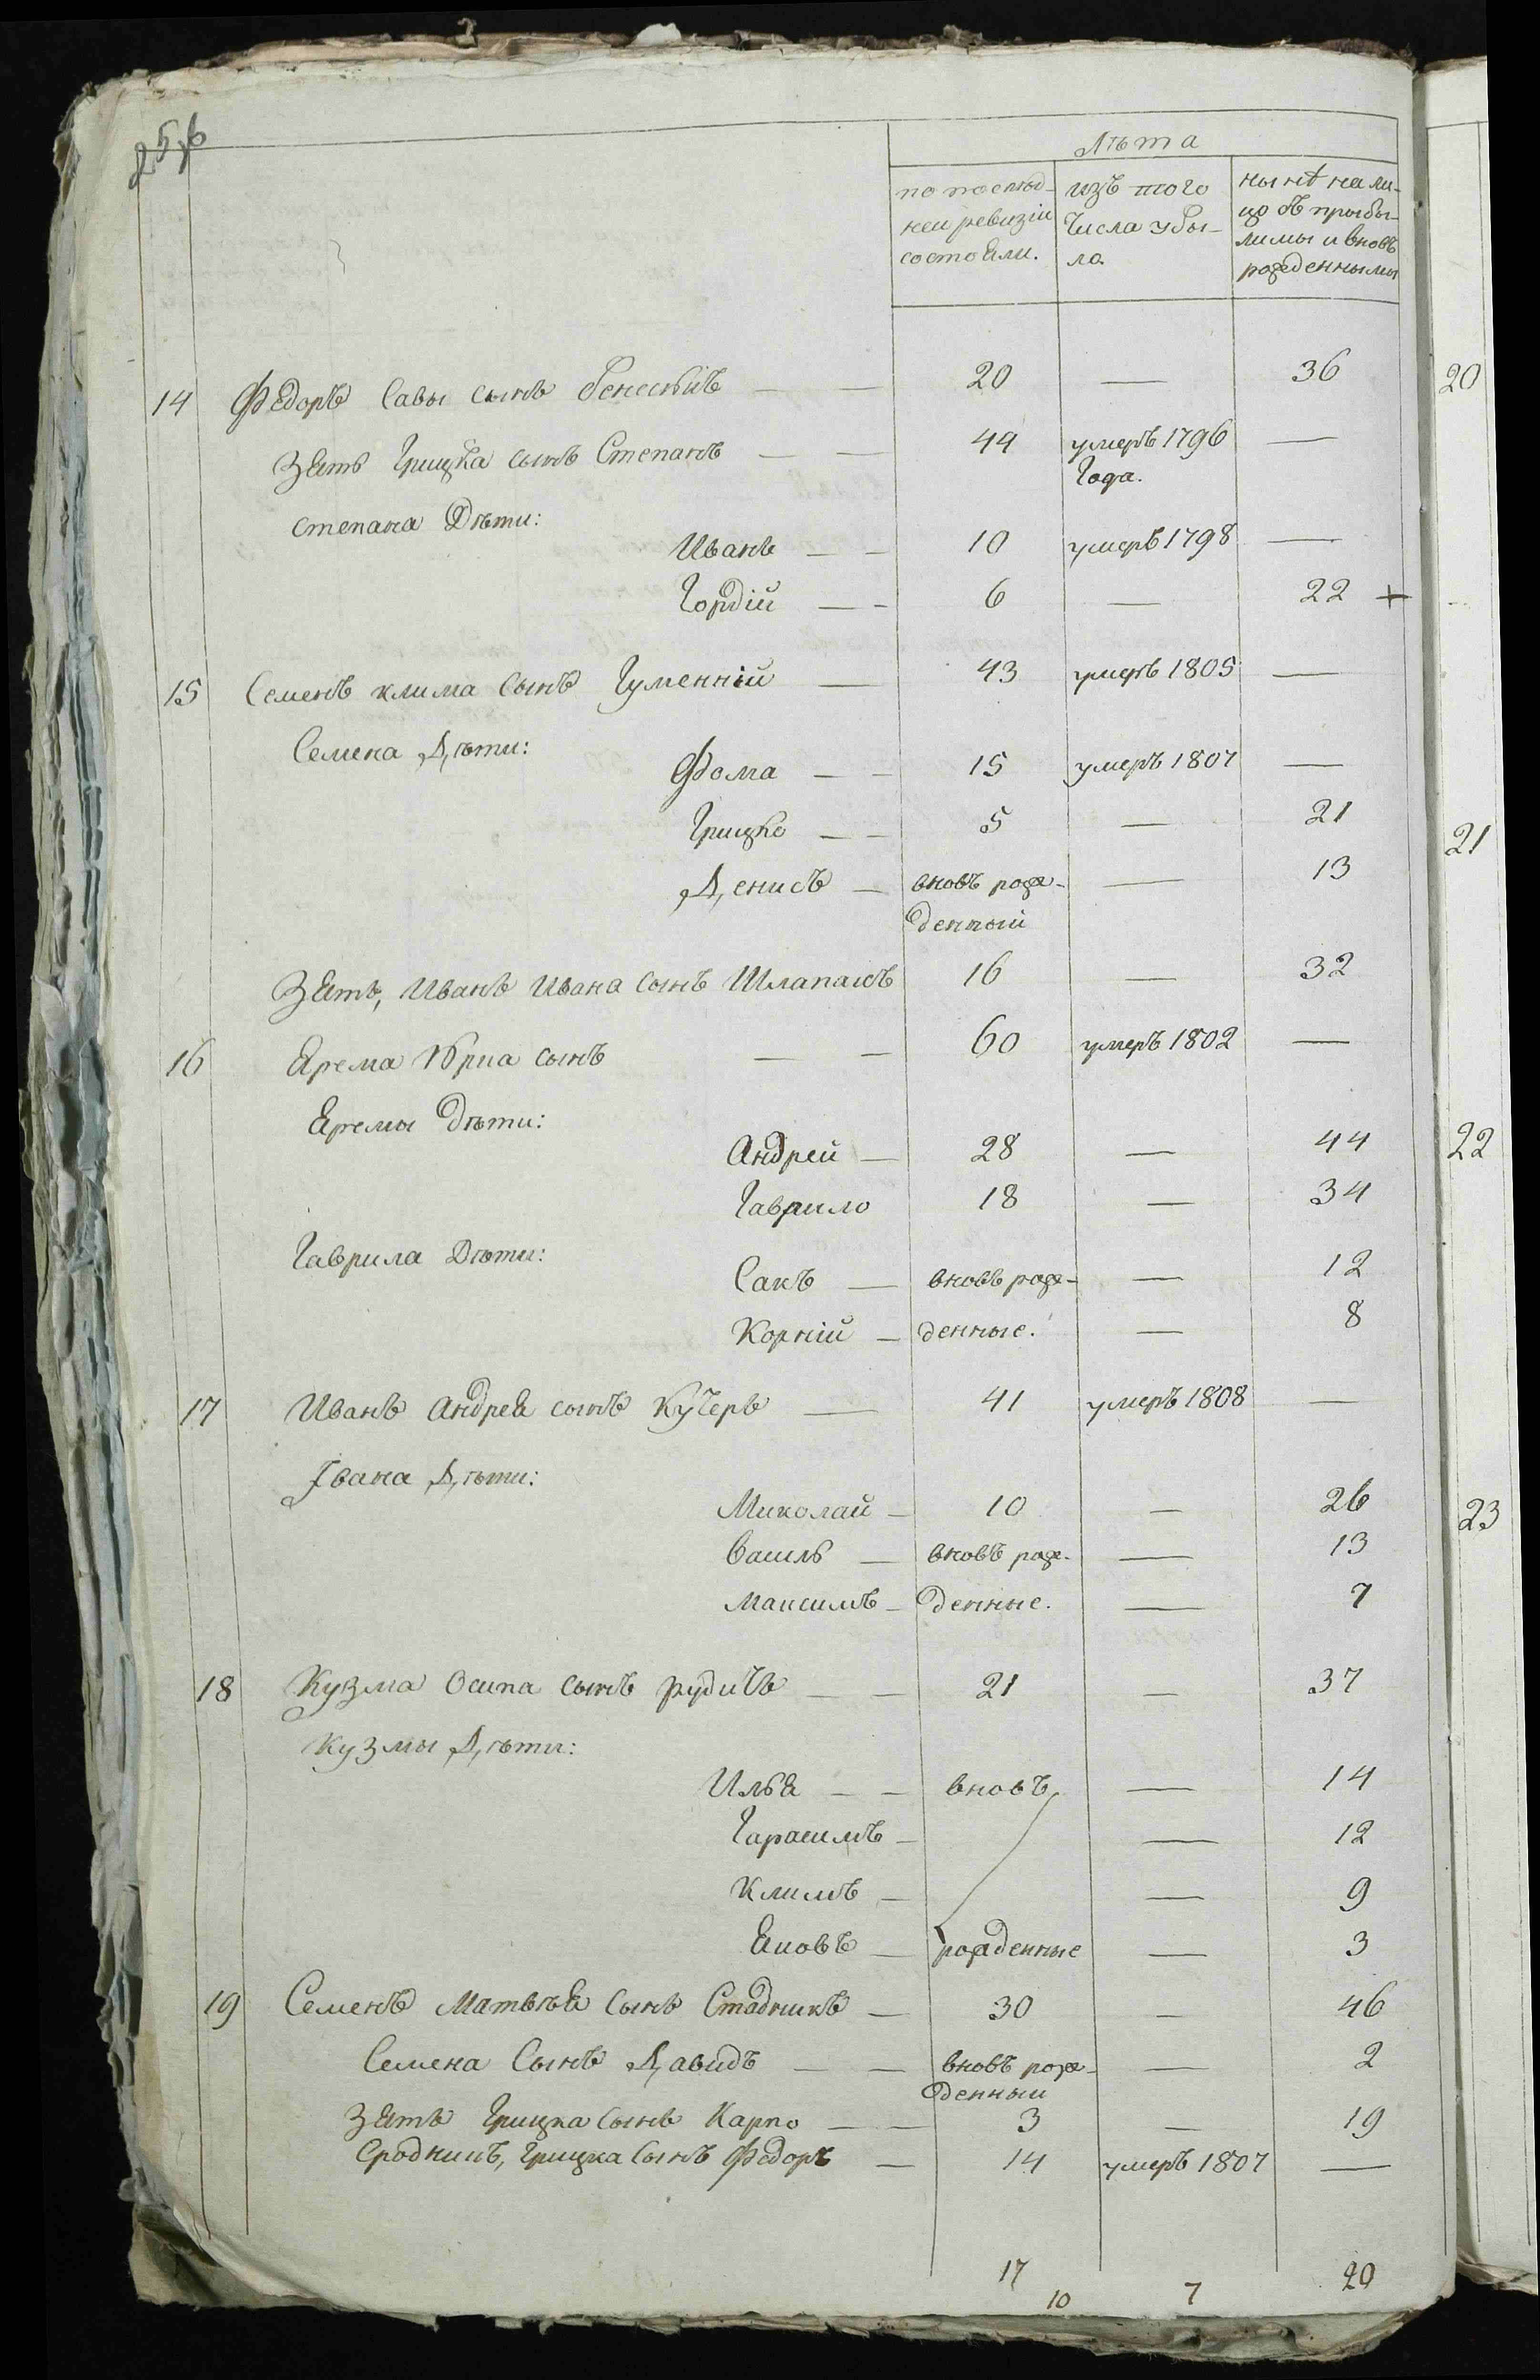 256
Лѣта
по послѣд-
ней ревизіи
состояли.
изъ того
числа убы-
ло.
нынѣ на ли-
цо съ прибы-
лими и вновь
рожденными
14 Федоръ Савы сынъ 20 — 36
Зять Грицка сынъ Степанъ — — 44 умеръ 1796 —
Года.
Степана Дѣти:
Иванъ — — 10 умеръ 1798 —
Гордій — - 6 — 22 +
15 Семенъ клима Сынъ Гуменній — 43 умеръ 1805 —
Семена Дѣти:
Фома — — 15 умеръ 1807 —
Грицко — — 5 — 21
Денисъ — вновь рож- — 13
денный
Зять, Иванъ Ивана сынъ Шлапакъ 16 — 32
16 Ярема Юрка сынъ — — 60 умеръ 1802 —
Яремы Дѣти:
Андрей — 28 — 44
Гаврило 18 — 34
Гаврила Дѣти:
Сакъ — вновь рож- — 12
Корній — денные. — 8
17 Иванъ Андрея сынъ Кучеръ — 41 умеръ 1808 —
Івана Дѣти:
Миколай — 10 — 26
Василь — вновь рож- — 13
Максимъ — денные. — 7
18 Кузма Осипа сынъ рудичъ — — 21 — 37
Кузмы Дѣти:
Илья — — вновь — 14
Гарасимъ — — 12
Климъ — — 9
Яковъ — рожденные — 3
19 Семенъ Матвѣя Сынъ Стадникъ — 30 — 46
Семена Сынъ Давидъ — — вновь рож- — 2
денный
Зять Грицка Сынъ Карпо — — 3 — 19
Сродникъ, Грицка Сынъ Федоръ — 14 умеръ 1807 —
17 20
10 7
20
21
22
23